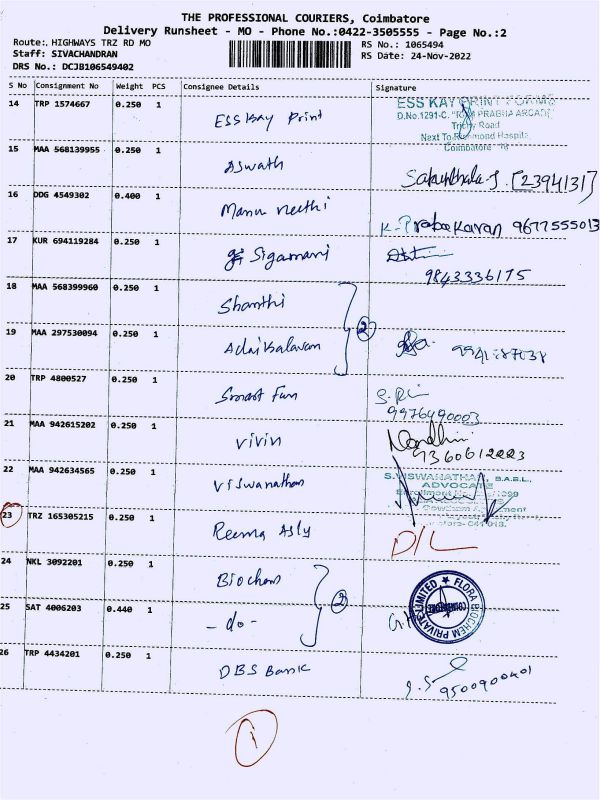 THE PROFESSIONAL COURIERS, Coimbatore
Delivery Runsheet - MO - Phone No.:0422-3505555 - Page No.:2
Route:. HIGHWAYS TRZ RD MO
Staff: SIVACHANDRAN
DRS No.: DCJB106549402
RS No.: 1065494
RS Date: 24-Nov-2022
S No Consignment No Weight PCS Consignee Details Signature
14 TRP 1574667 0.250 1 ESS Kay Print
ESS KAY PRINT
D.No.1291-C. "RAM PRABHA ARCADE
Trichy Road
Next To Richmond Hospital
Coimbatore - 18
15 MAA 568139955 0.250 1 Aswath [2394131]
16 DDG 4549302 0.400 1 Manu neethi K. Prabakaran 9677555013
17 KUR 694119284 0.250 1 Sigamani
9843336175
18 MAA 568399960 0.250 1 Shanthi
2
19 MAA 297530094 0.250 1 Adaikalavan
20 TRP 4800527 0.250 1 Smart Fun
9976490003
21 MAA 942615202 0.250 1 vivin Nandhini
22 MAA 942634565 0.250 1 Viswanathan
S.VISWANATHAN, B.A.B.L.
ADVOCATE
23 TRZ 165305215 0.250 1 Reema Asly D/L
24 NKL 3092201 0.250 1 Biochem
2
FLORA BIOCHEM PRIVATE LIMITED
COIMBATORE
25 SAT 4006203 0.440 1 - do -
26 TRP 4434201 0.250 1 DBS Bank
1